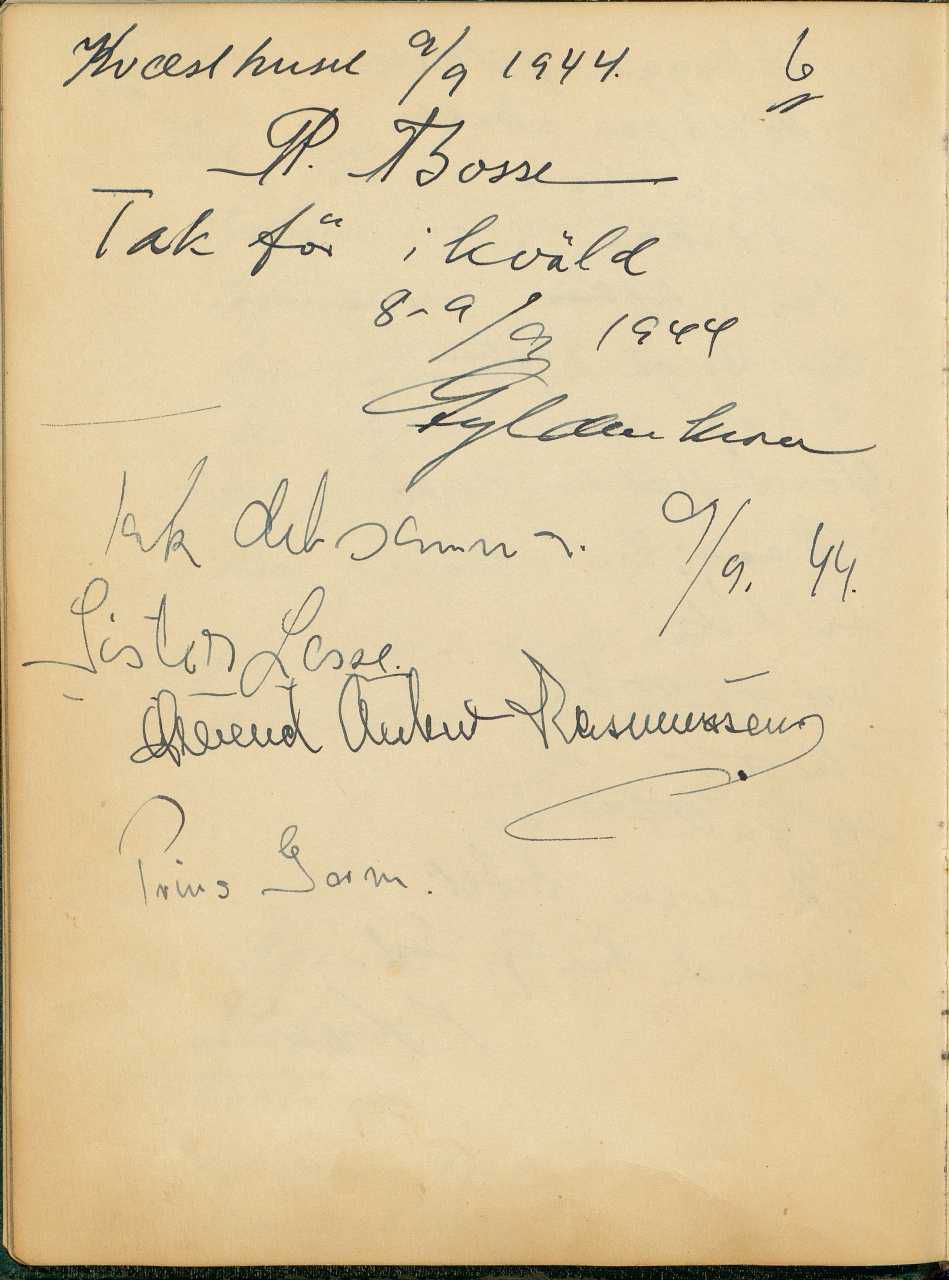 Kvæsthuset 9/9 1944. 6
P. Bosse
Tak för ikväld
8-9/9 1944
Gyldenkrone
Tak det samme. 9/9. 44.
Lasse.
Svend Rasmussen
Prins Gorm.